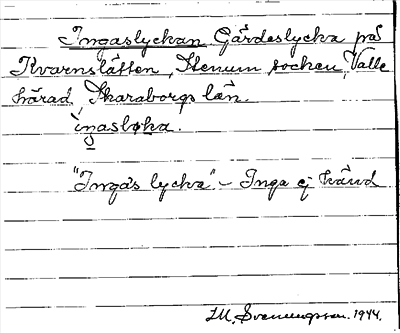 Ingaslyckan Gärdeslycka på
Kvarnslätten, Stenum socken, Valle
härad, Skaraborgs län.
"Inga's lycka" – Inga ej känd
M. Svenungsson. 1944.